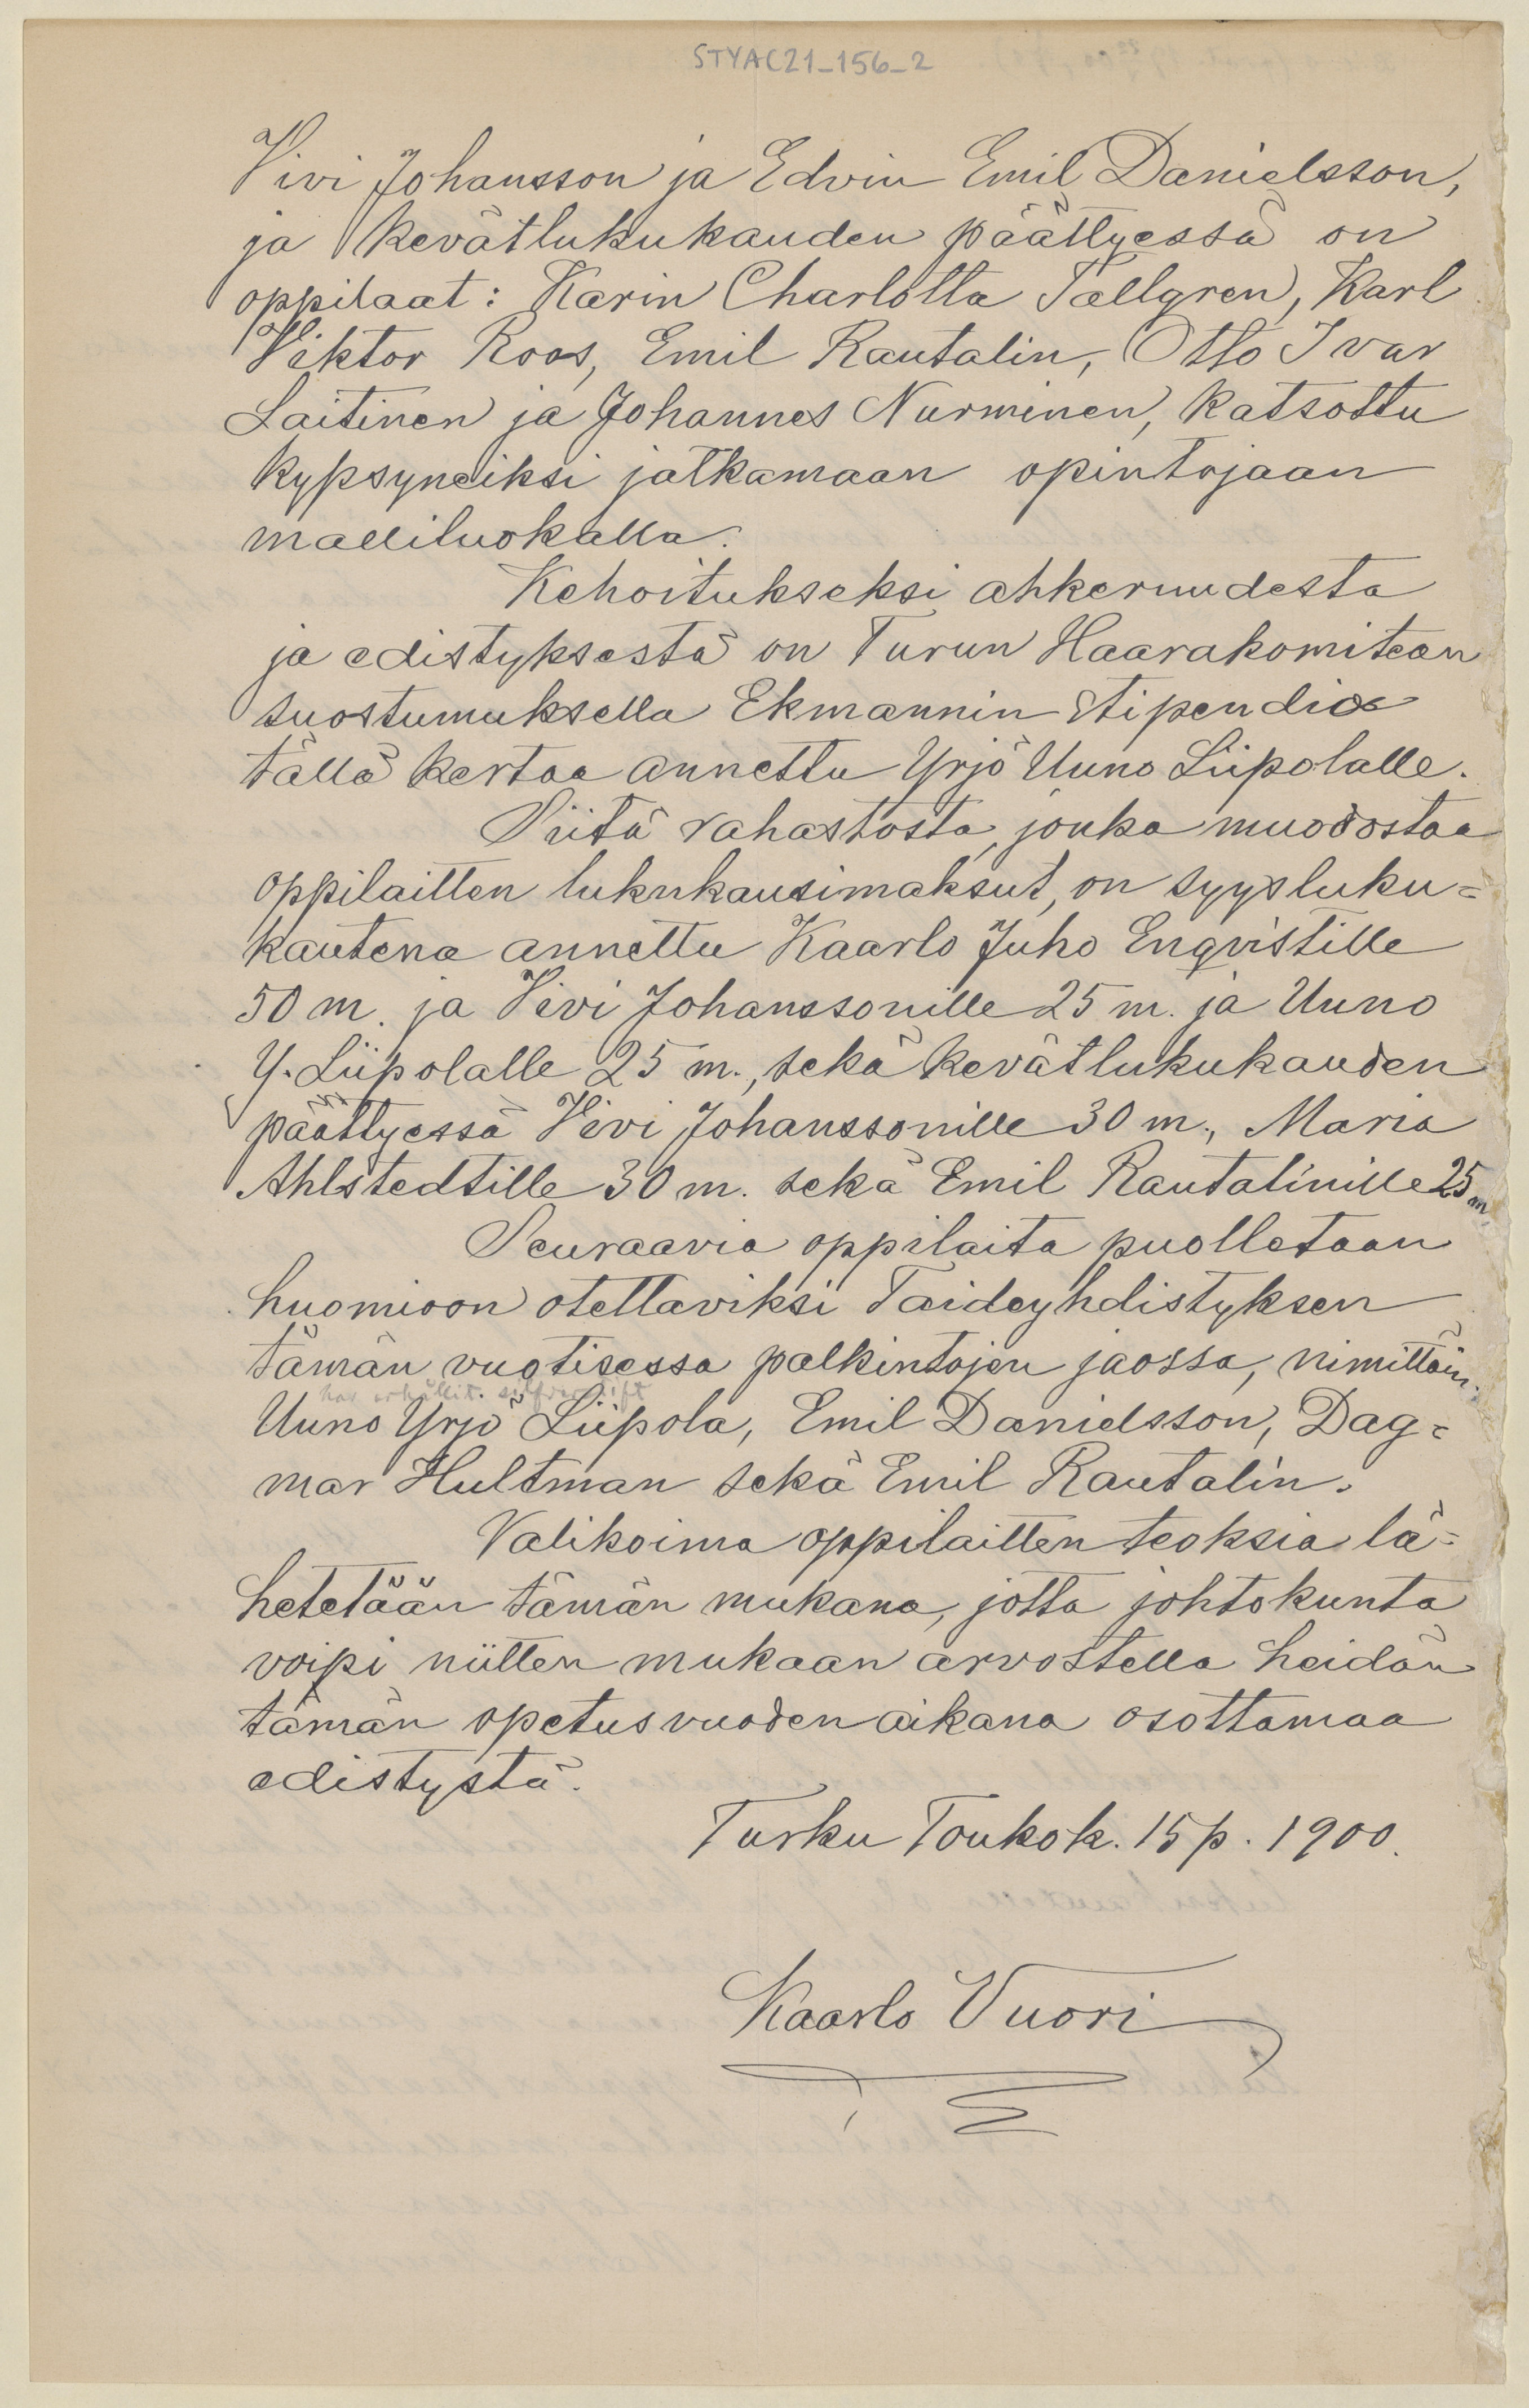 STYAC21_156_2
Vivi Johansson ja Edvin Emil Danielsson,
ja kevätlukukauden päättyessä on
oppilaat: Karin Charlotta Tallgren, Karl
Viktor Roos, Emil Rautalin, Otto Ivar
Laitinen ja Johannes Nurminen, katsottu
kypsyneiksi jatkamaan opintojaan
malliluokalla.
Kehoitukseksi ahkeruudesta
ja edistyksestä on Turun Haarakomitean
suostumuksella Ekmannin stipendia
tällä kertaa annettu Yrjö Uuno Liipolalle.
Siitä rahastosta, jonka muodostaa
oppilaitten lukukausimaksut, on syysluku=
kautena annettu Kaarlo Juho Enqvistille
50 m. ja Vivi Johanssonille 25 m. ja Uuno
Y. Liipolalle 25 m., sekä kevätlukukauden
päättyessä Vivi Johanssonille 30 m., Maria
Ahlstedtille 30 m. sekä Emil Rautalinille 25 m
Seuraavia oppilaita puolletaan
huomioon otettaviksi Taideyhdistyksen
tämän vuotisessa palkintojen jaossa, nimittäin:
har erhållit silfverstift
Uuno Yrjö Liipola, Emil Danielsson, Dag=
mar Hultman sekä Emil Rautalin.
Valikoima oppilaitten teoksia lä=
hetetään tämän mukana, jotta johtokunta
voipi niitten mukaan arvostella heidän
tämän opetusvuoden aikana osottamaa
edistystä.
Turku Toukok. 15 p. 1900.
Kaarlo Vuori